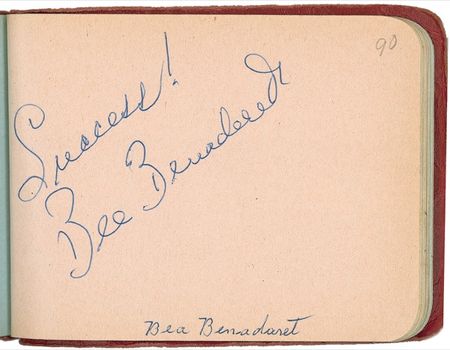 90
Success!
Bea Benaderet
Bea Benadaret